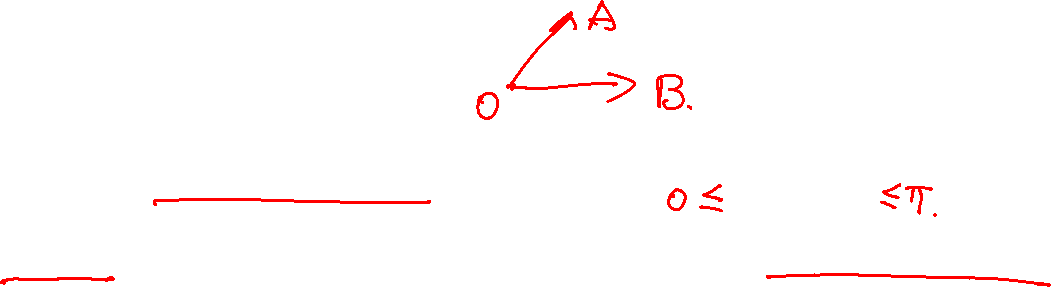 A
O B.
0 ≤ ≤ π.